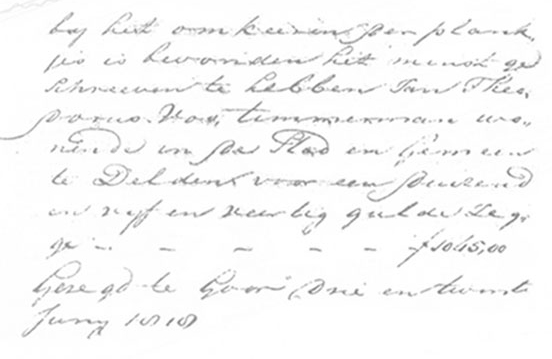 by het omkeeren der plank,
jes is bevonden het minst ge
schreeven te hebben Jan Thee,
dorus Vos, timmerman wo,,
nende in de Stad en Gemeen
te Delden voor een duizend
en vyf en veertig gulde Zeg,
ge - - - - - f 1045,00
Gezegd te Goor Drie en twint
Juny 1818